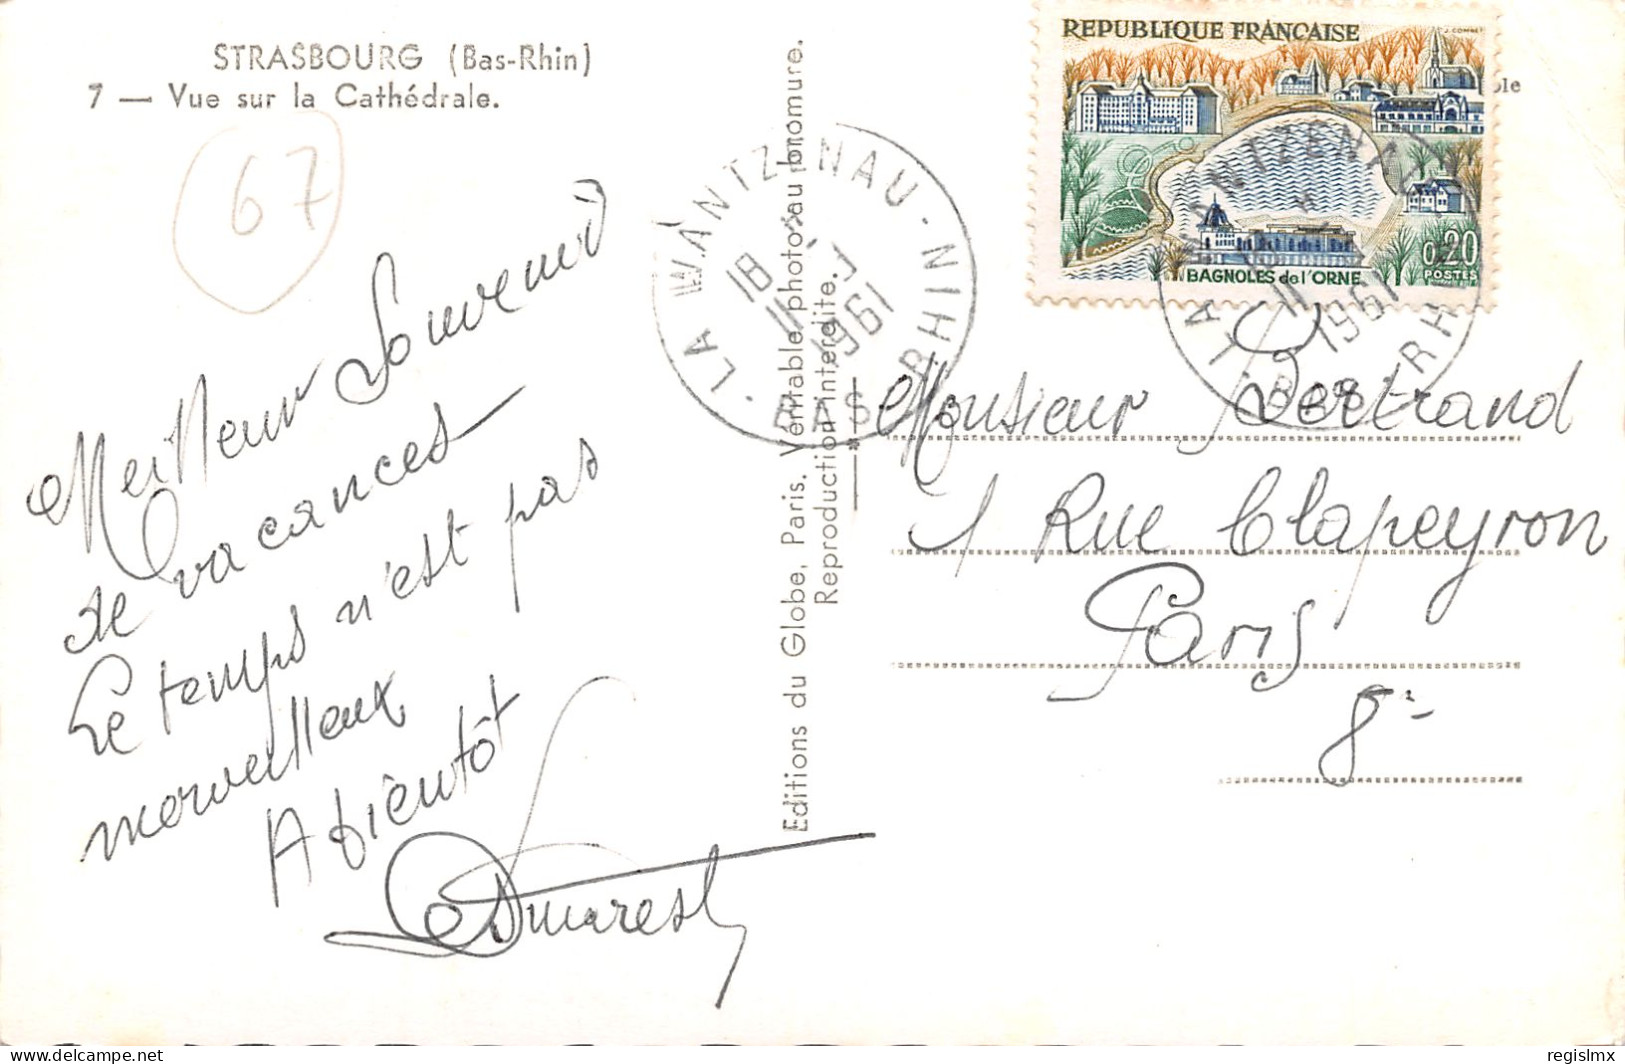 STRASBOURG (Bas-Rhin)
7 — Vue sur la Cathédrale.
67
Meilleur Souvenir
de vacances
Le temps n'est pas
merveilleux
A bientôt
Editions du Globe, Paris. Véritable photo au bromure.
Reproduction interdite.
LA WANTZENAU · BAS RHIN ·
18 H
11 - 7
1961
REPUBLIQUE FRANÇAISE
J. COMBET
BAGNOLES de l'ORNE
0,20
POSTES
LA WANTZENAU
11
1961
BAS RHIN
Monsieur Bertrand
1 Rue Clapeyron
Paris
8e
regislmx
www.delcampe.net